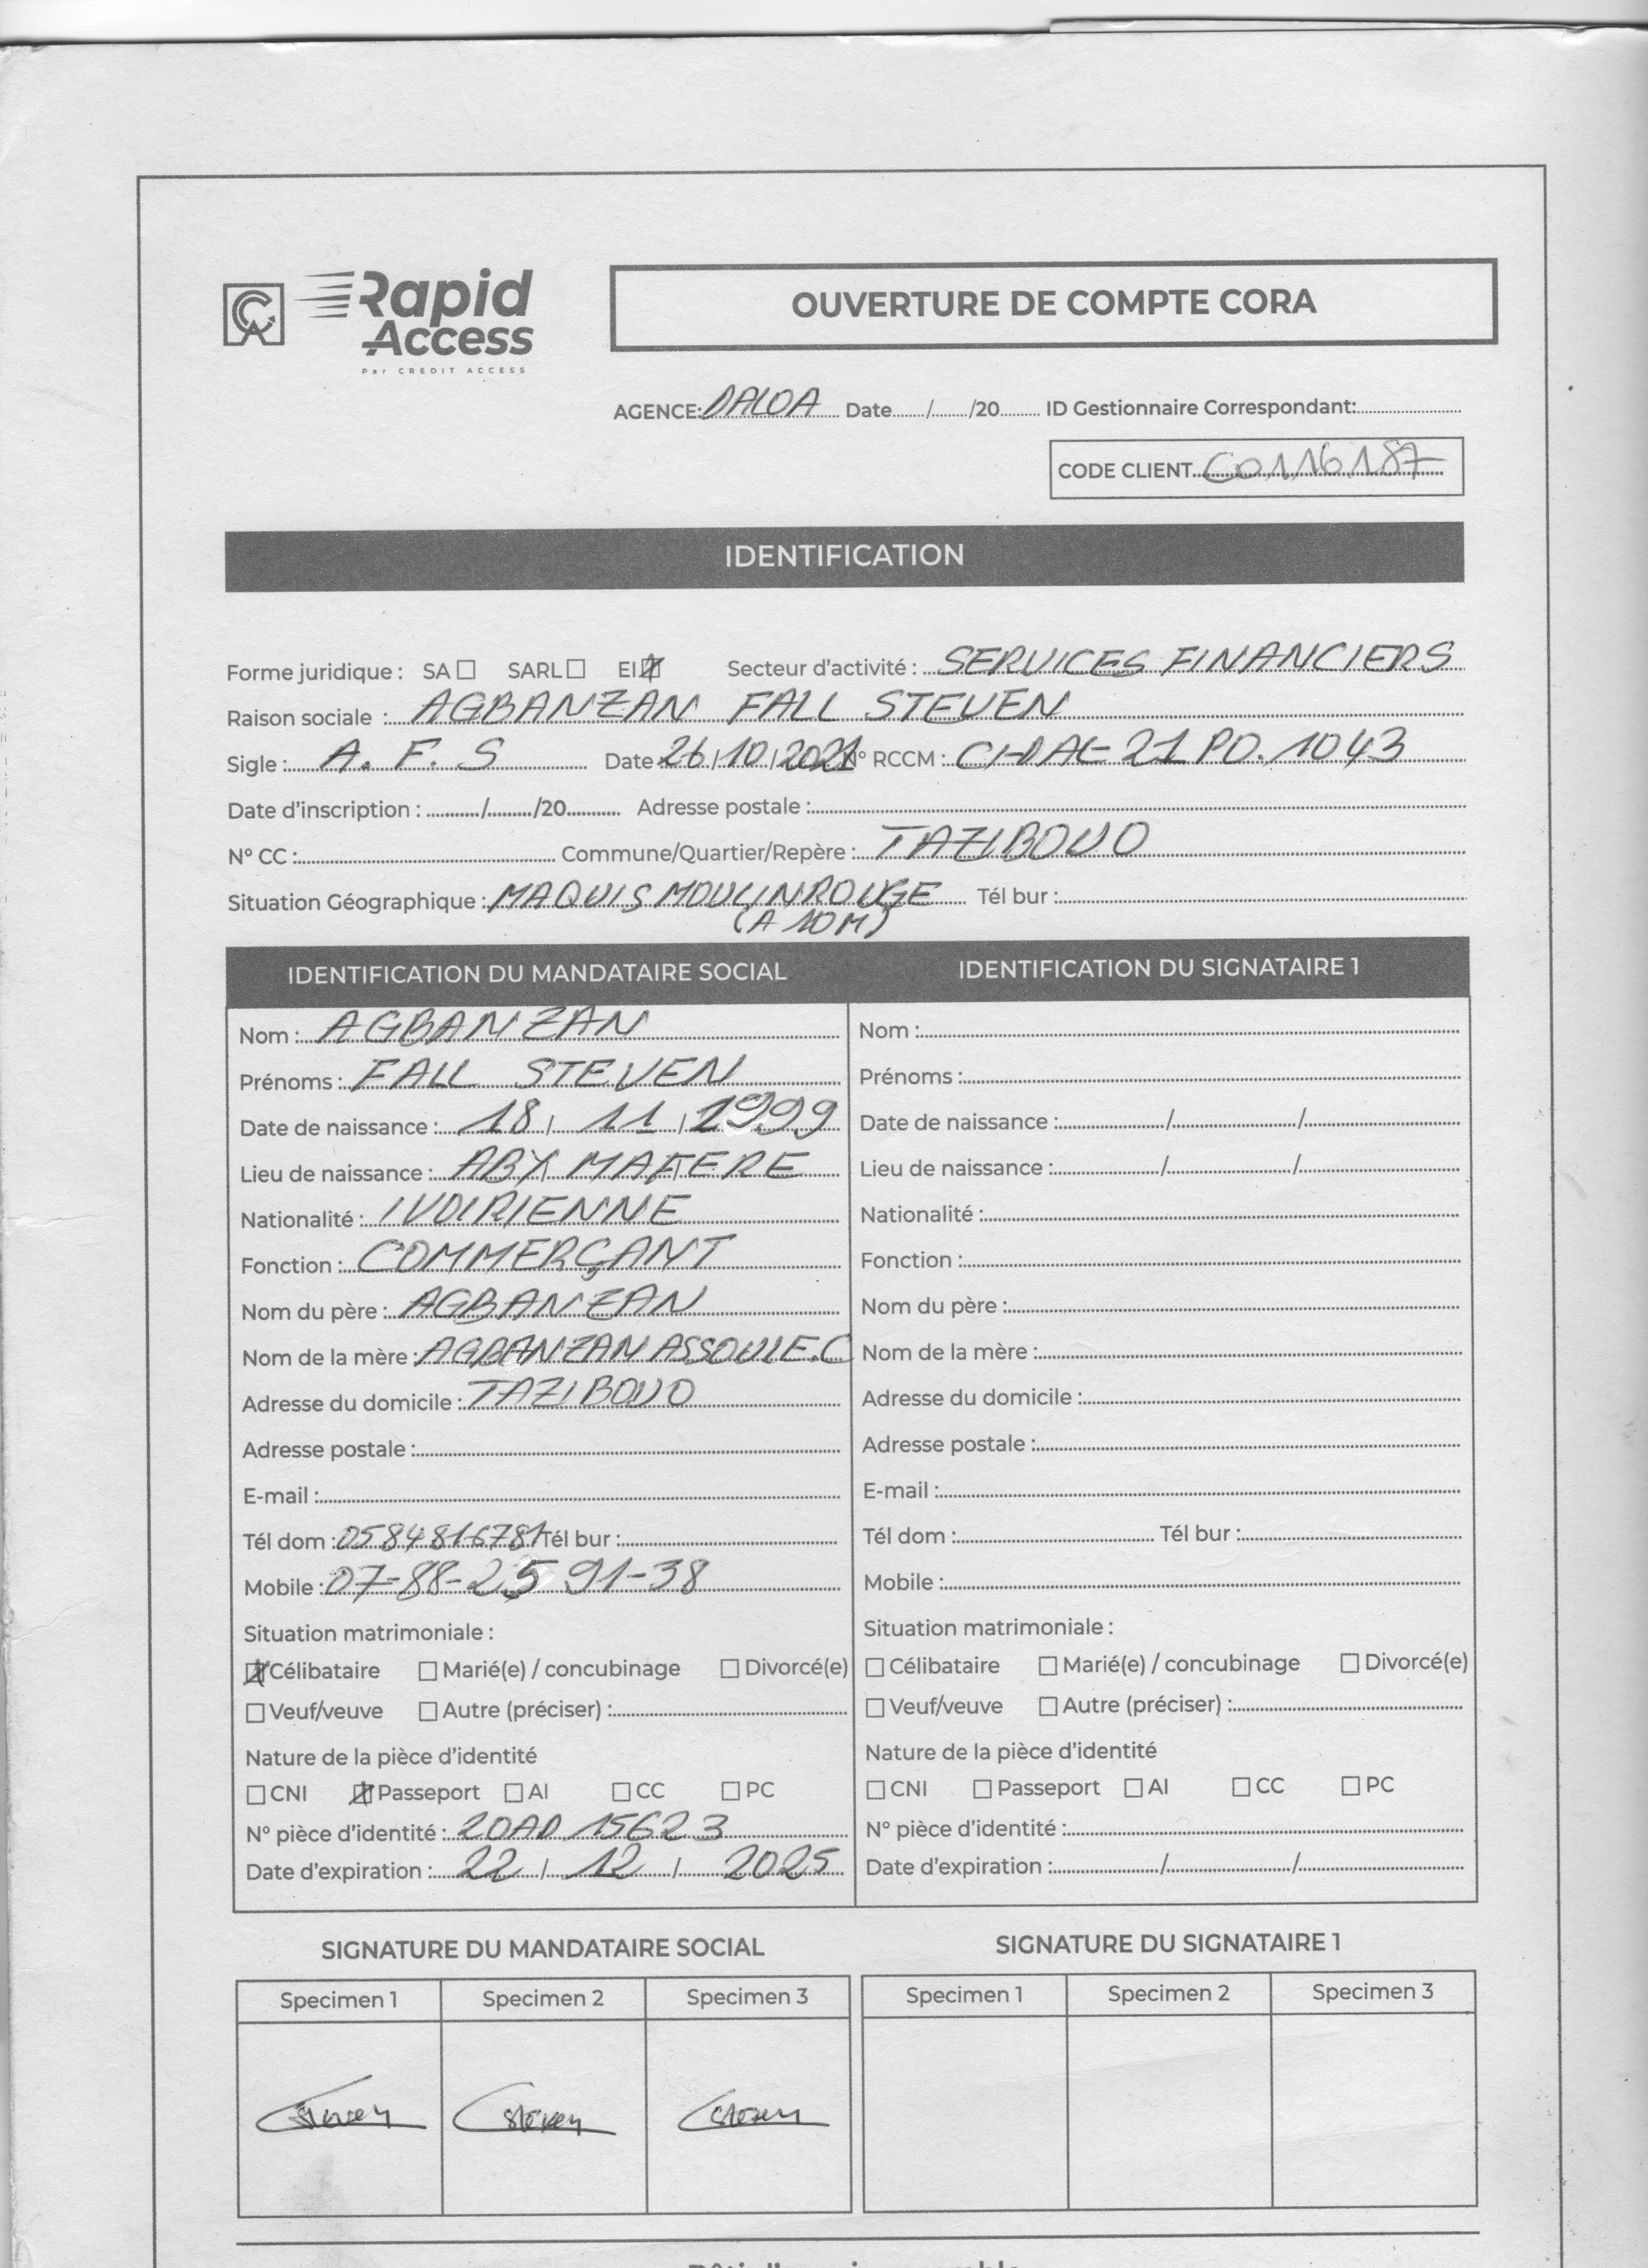 Rapid Access
Par CREDIT ACCESS
OUVERTURE DE COMPTE CORA
AGENCE: DALOA Date....../....../20...... ID Gestionnaire Correspondant:
CODE CLIENT C0116187
IDENTIFICATION
Forme juridique : SA ☐ SARL ☐ EI ☒ Secteur d'activité : SERVICES FINANCIERS
Raison sociale : AGBANZAN FALL STEVEN
Sigle : A. F. S Date 26/10/2021 N° RCCM : CI-DAL-21 PO. 1043
Date d'inscription : ....../....../20...... Adresse postale :
N° CC : Commune/Quartier/Repère : TAZIBOUO
Situation Géographique : MAQUIS MOULIN ROUGE Tél bur :
(A 10M)
IDENTIFICATION DU MANDATAIRE SOCIAL
Nom : AGBANZAN
Prénoms : FALL STEVEN
Date de naissance : 18 / 11 / 1999
Lieu de naissance : ABY MAFERE
Nationalité : IVOIRIENNE
Fonction : COMMERÇANT
Nom du père : AGBANZAN
Nom de la mère : AGBANZAN ASSOULE.C
Adresse du domicile : TAZIBOUO
Adresse postale :
E-mail :
Tél dom : 0584816781 Tél bur :
Mobile : 07-88-25 91-38
Situation matrimoniale :
☒ Célibataire ☐ Marié(e) / concubinage ☐ Divorcé(e)
☐ Veuf/veuve ☐ Autre (préciser) :
Nature de la pièce d'identité
☐ CNI ☒ Passeport ☐ AI ☐ CC ☐ PC
N° pièce d'identité : 20AD 15623
Date d'expiration : 22 / 12 / 2025
IDENTIFICATION DU SIGNATAIRE 1
Nom :
Prénoms :
Date de naissance : / /
Lieu de naissance : / /
Nationalité :
Fonction :
Nom du père :
Nom de la mère :
Adresse du domicile :
Adresse postale :
E-mail :
Tél dom : Tél bur :
Mobile :
Situation matrimoniale :
☐ Célibataire ☐ Marié(e) / concubinage ☐ Divorcé(e)
☐ Veuf/veuve ☐ Autre (préciser) :
Nature de la pièce d'identité
☐ CNI ☐ Passeport ☐ AI ☐ CC ☐ PC
N° pièce d'identité :
Date d'expiration : / /
SIGNATURE DU MANDATAIRE SOCIAL
Specimen 1 Specimen 2 Specimen 3
Steven Steven Steven
SIGNATURE DU SIGNATAIRE 1
Specimen 1 Specimen 2 Specimen 3